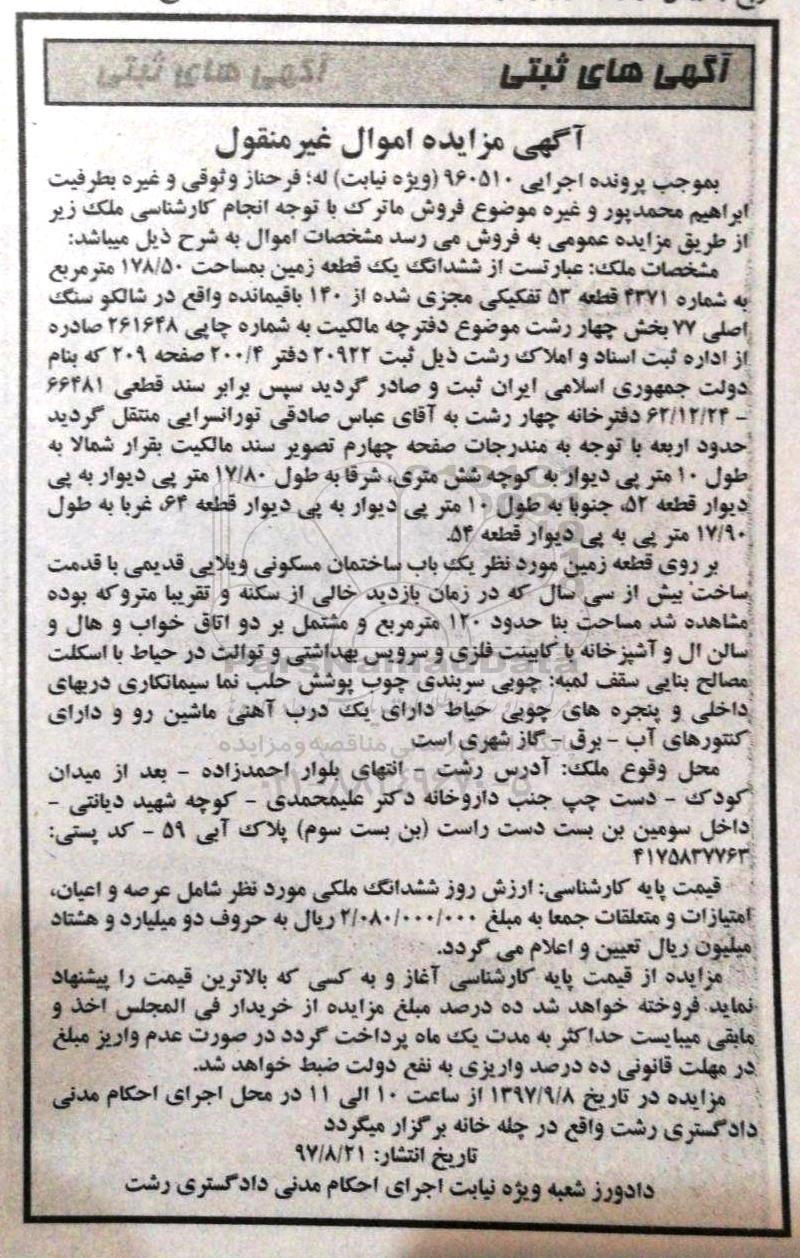 آگهی های ثبتی
آگهی مزایده اموال غیرمنقول
بموجب پرونده اجرایی ۹۶۰۵۱۰ (ویژه نیابت) له؛ فرحناز وثوقی و غیره بطرفیت
ابراهیم محمدپور و غیره موضوع فروش ماترک با توجه انجام کارشناسی ملک زیر
از طریق مزایده عمومی به فروش می رسد مشخصات اموال به شرح ذیل میباشد:
مشخصات ملک: عبارتست از ششدانگ یک قطعه زمین بمساحت ۱۷۸/۵۰ مترمربع
به شماره ۴۳۷۱ قطعه ۵۳ تفکیکی مجزی شده از ۱۴۰ باقیمانده واقع در شالکو سنگ
اصلی ۷۷ بخش چهار رشت موضوع دفترچه مالکیت به شماره چاپی ۲۶۱۶۴۸ صادره
از اداره ثبت اسناد و املاک رشت ذیل ثبت ۲۰۹۲۲ دفتر ۲۰۰/۴ صفحه ۲۰۹ که بنام
دولت جمهوری اسلامی ایران ثبت و صادر گردید سپس برابر سند قطعی ۶۶۴۸۱
- ۶۲/۱۲/۲۴ دفترخانه چهار رشت به آقای عباس صادقی تورانسرایی منتقل گردید
حدود اربعه با توجه به مندرجات صفحه چهارم تصویر سند مالکیت بقرار شمالا به
طول ۱۰ متر پی دیوار به کوچه شش متری، شرقا به طول ۱۷/۸۰ متر پی دیوار به پی
دیوار قطعه ۵۲، جنوبا به طول ۱۰ متر پی دیوار به پی دیوار قطعه ۶۴، غربا به طول
۱۷/۹۰ متر پی به پی دیوار قطعه ۵۴.
بر روی قطعه زمین مورد نظر یک باب ساختمان مسکونی ویلایی قدیمی با قدمت
ساخت بیش از سی سال که در زمان بازدید خالی از سکنه و تقریبا متروکه بوده
مشاهده شد مساحت بنا حدود ۱۲۰ مترمربع و مشتمل بر دو اتاق خواب و هال و
سالن ال و آشپزخانه با کابینت فلزی و سرویس بهداشتی و توالت در حیاط با اسکلت
مصالح بنایی سقف لمبه: چوبی سربندی چوب پوشش حلب نما سیمانکاری دربهای
داخلی و پنجره های چوبی حیاط دارای یک درب آهنی ماشین رو و دارای
کنتورهای آب - برق - گاز شهری است
محل وقوع ملک: آدرس رشت - انتهای بلوار احمدزاده - بعد از میدان
کودک - دست چپ جنب داروخانه دکتر علیمحمدی - کوچه شهید دیانتی -
داخل سومین بن بست دست راست (بن بست سوم) پلاک آبی ۵۹ - کد پستی:
۴۱۷۵۸۳۷۷۶۳
قیمت پایه کارشناسی: ارزش روز ششدانگ ملکی مورد نظر شامل عرصه و اعیان،
امتیازات و متعلقات جمعا به مبلغ ۲/۰۸۰/۰۰۰/۰۰۰ ریال به حروف دو میلیارد و هشتاد
میلیون ریال تعیین و اعلام می گردد.
مزایده از قیمت پایه کارشناسی آغاز و به کسی که بالاترین قیمت را پیشنهاد
نماید فروخته خواهد شد ده درصد مبلغ مزایده از خریدار فی المجلس اخذ و
مابقی میبایست حداکثر به مدت یک ماه پرداخت گردد در صورت عدم واریز مبلغ
در مهلت قانونی ده درصد واریزی به نفع دولت ضبط خواهد شد.
مزایده در تاریخ ۱۳۹۷/۹/۸ از ساعت ۱۰ الی ۱۱ در محل اجرای احکام مدنی
دادگستری رشت واقع در چله خانه برگزار میگردد
تاریخ انتشار: ۹۷/۸/۲۱
دادورز شعبه ویژه نیابت اجرای احکام مدنی دادگستری رشت